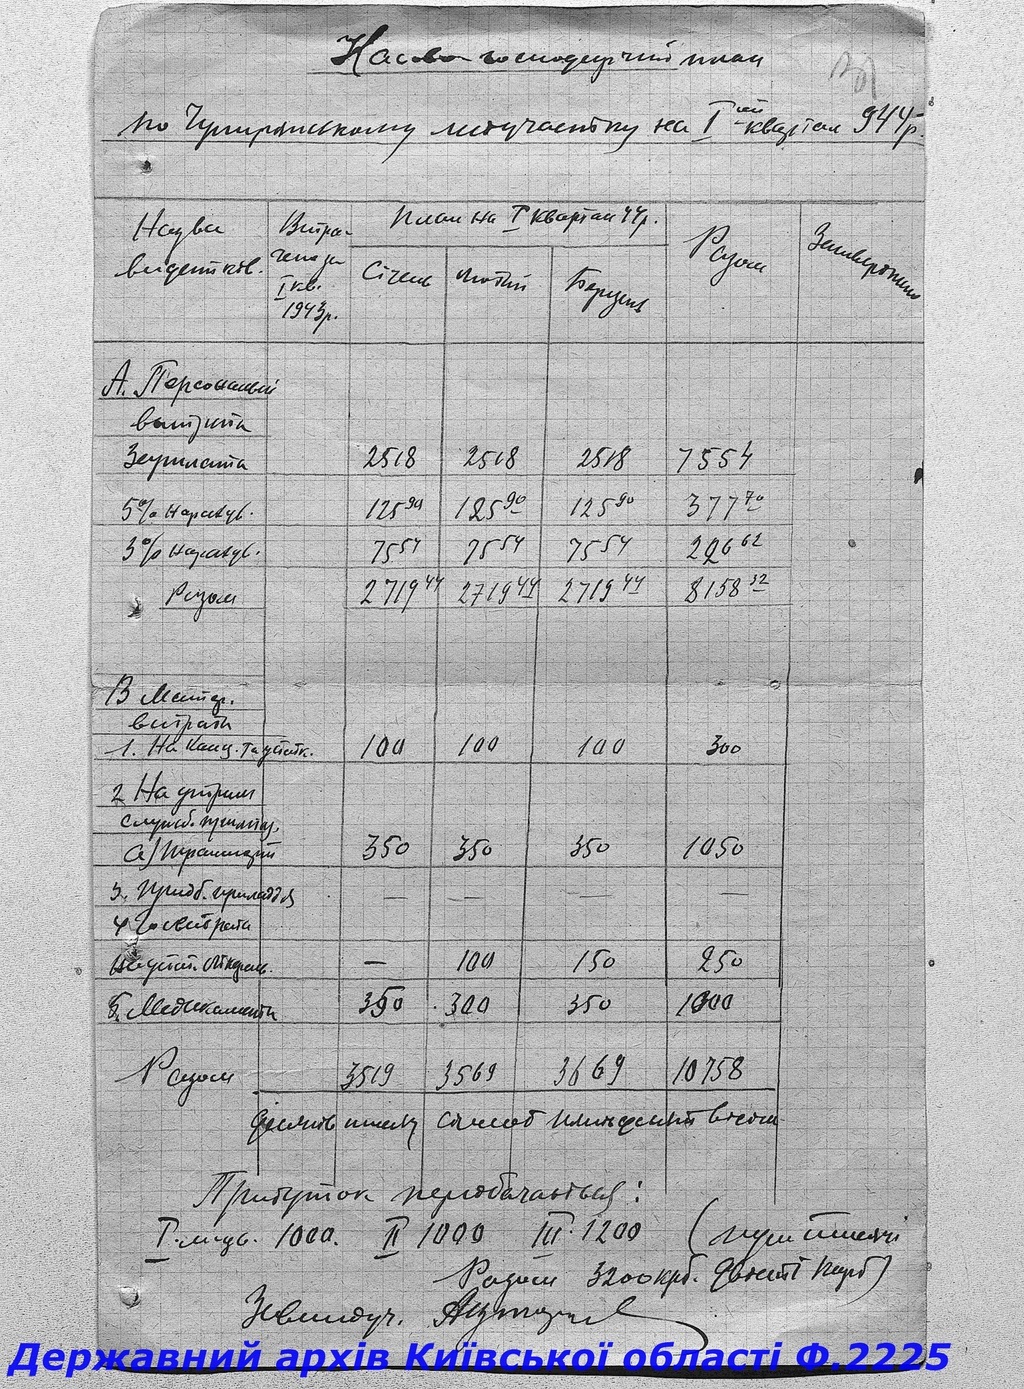 Касово-господарчий план
по медучастку на Iий квартал 944р.
Назва видатків.
Витрачено за I кв. 1943р.
План на I квартал 44р.
Січень Лютий Березень
Разом
Затверджено
А. Персональні
витрати
Зарплата 2518 2518 2518 7554
5% нарахув. 125 90 125 90 125 90 377 70
3% нарахув. 75 54 75 54 75 54 226 62
Разом 2719 44 2719 44 2719 44 8158 32
В Матер.
витрати
1. На канц. та 100 100 100 300
2 На утрим
служб. приміщ.
а) 350 350 350 1050
3. Придб. приладдя — — — —
4 Госп витрати
— 100 150 250
5. Медикаменти 350 300 350 1000
Разом 3519 3569 3669 10758
десять тисяч сімсот п'ятдесят вісім
Прибуток передбачається:
I. 1000. II 1000 III. 1200 (три тисячі
Разом 3200 крб. двісті карб)
Завмедуч.
Державний архів Київської області Ф.2225